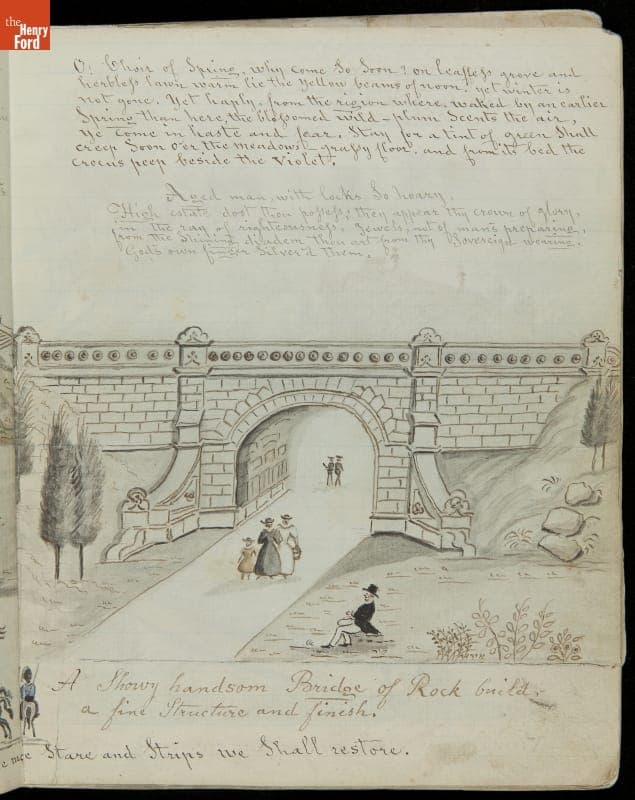 the
Henry
Ford
O! Choir of Spring, why come so soon? on leafless grove and
herbless lawn warm lie the yellow beams of noon, yet winter is
not gone. Yet haply, from the region where, waked by an earlier
Spring than here, the blossomed wild-plum scents the air,
ye come in haste and fear. Stay for a tint of green shall
creep soon o'er the meadows grassy floor, and from its bed the
crocus peep beside the violet.
Aged man, with locks so hoary,
High estate dost thou possess; they appear thy crown of glory,
in the ray of righteousness. Jewels, not of man's preparing,
from the Shining diadem thou art from thy Sovereign wearing.
God's own finger Silver'd them.
A Showy handsom Bridge of Rock build,
a fine Structure and finish.
Stare and Strips we Shall restore.